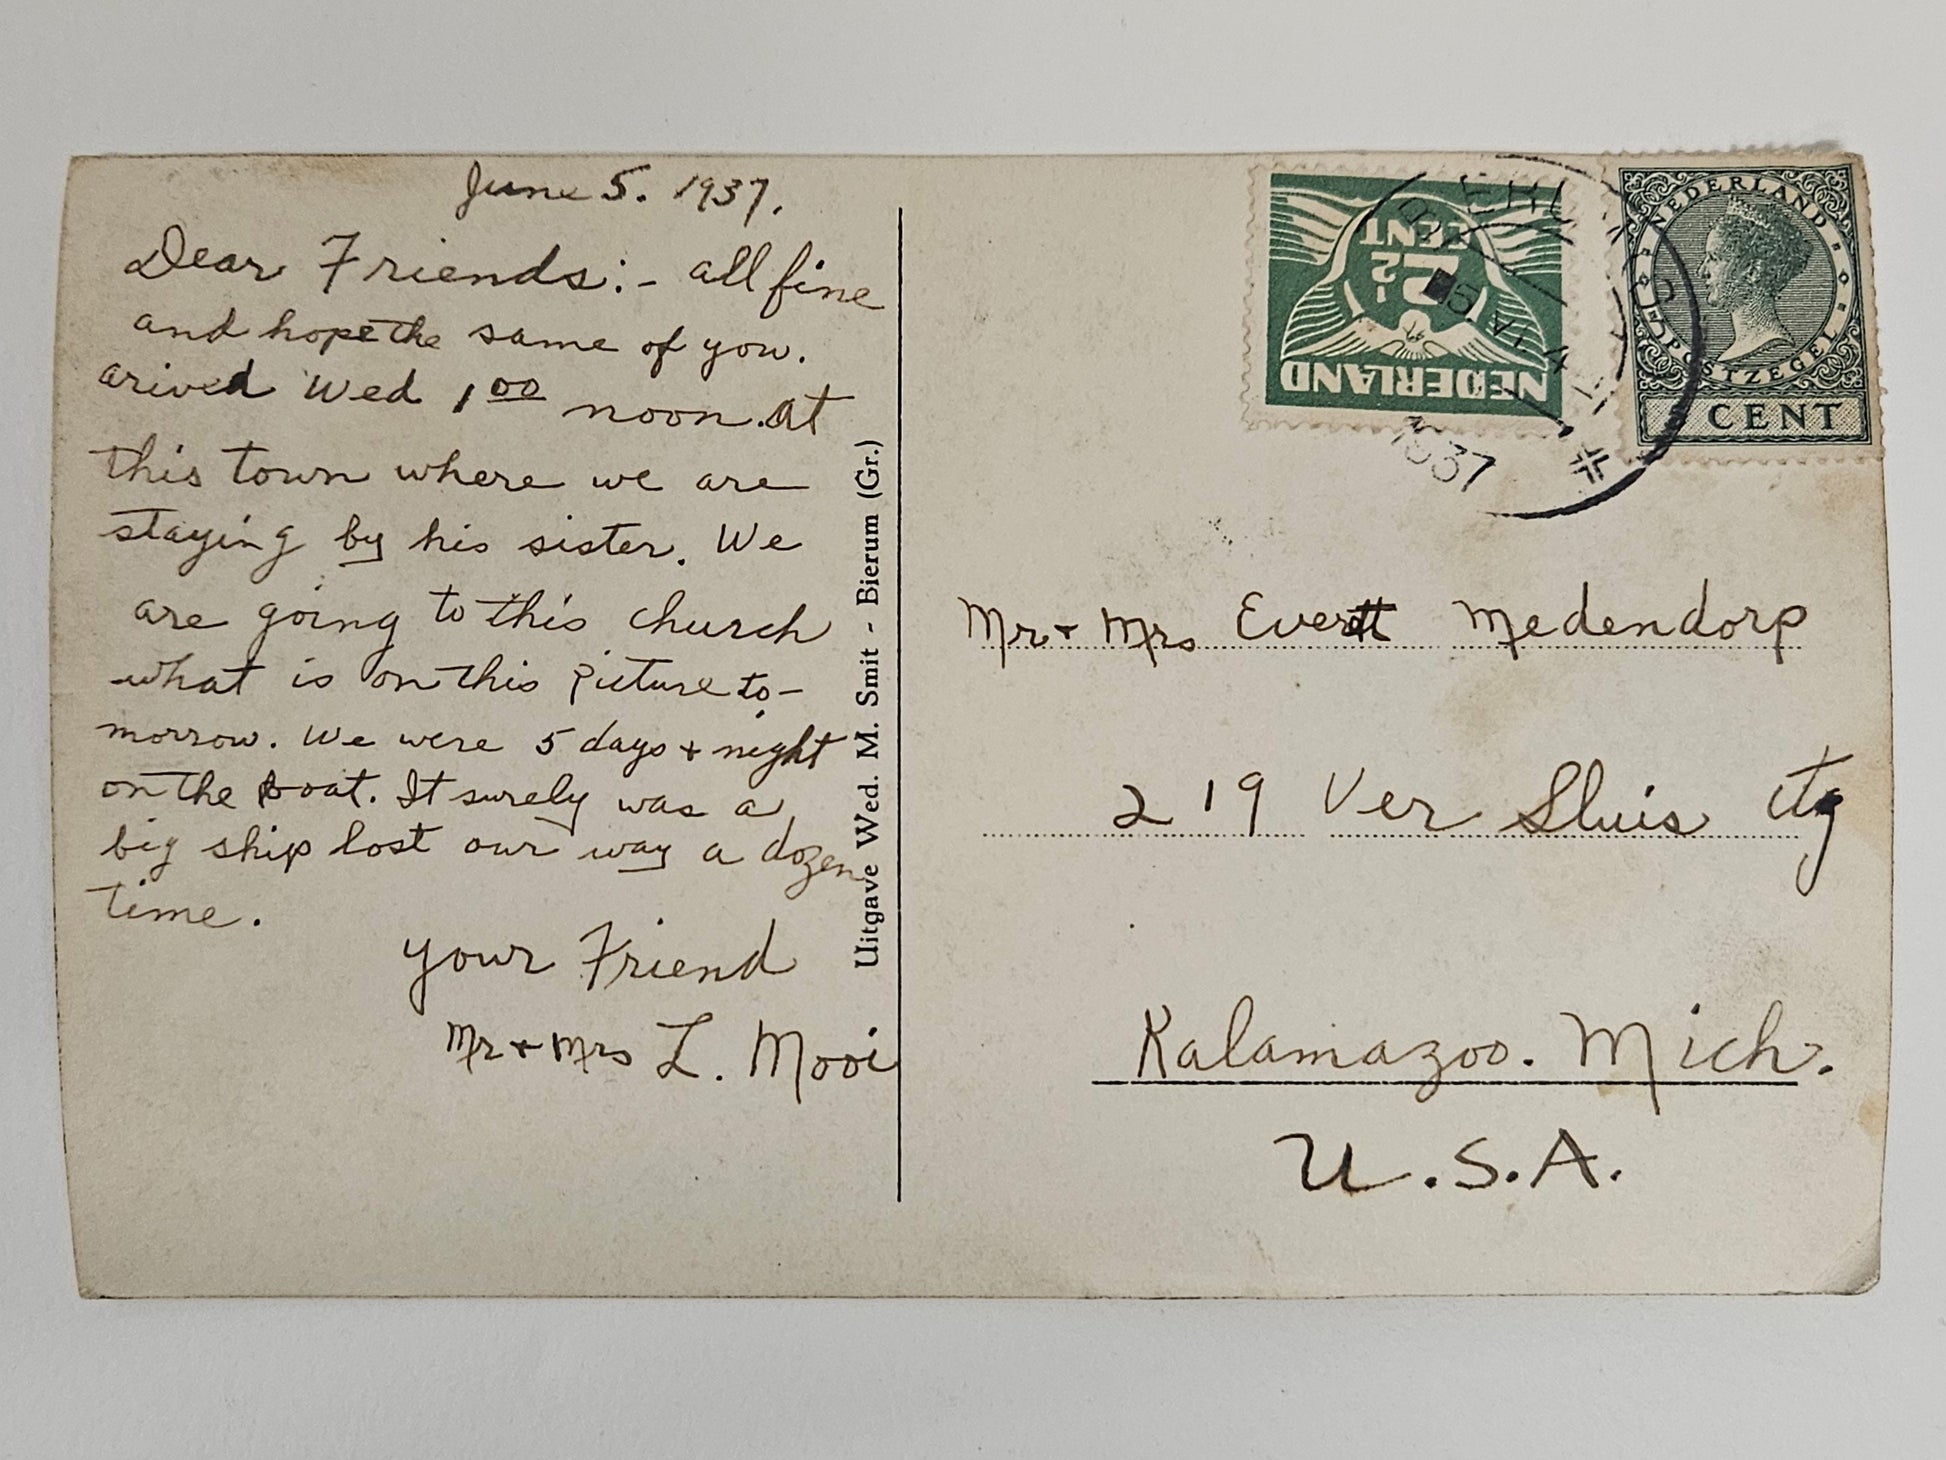 June 5. 1937.
Dear Friends:- all fine
and hope the same of you.
arived Wed 1 00 noon. at
this town where we are
staying by his sister. We
are going to this church
what is on this picture to-
morrow. We were 5 days + night
on the boat. It surely was a
big ship lost our way a dozen
time.
your Friend
Mr + Mrs L. Mooi
Uitgave Wed. M. Smit - Bierum (Gr.)
NEDERLAND
2½
CENT
NEDERLAND
POSTZEGEL
CENT
1937
Mr + Mrs Evertt Medendorp
219 Ver Sluis
Kalamazoo. Mich.
U.S.A.